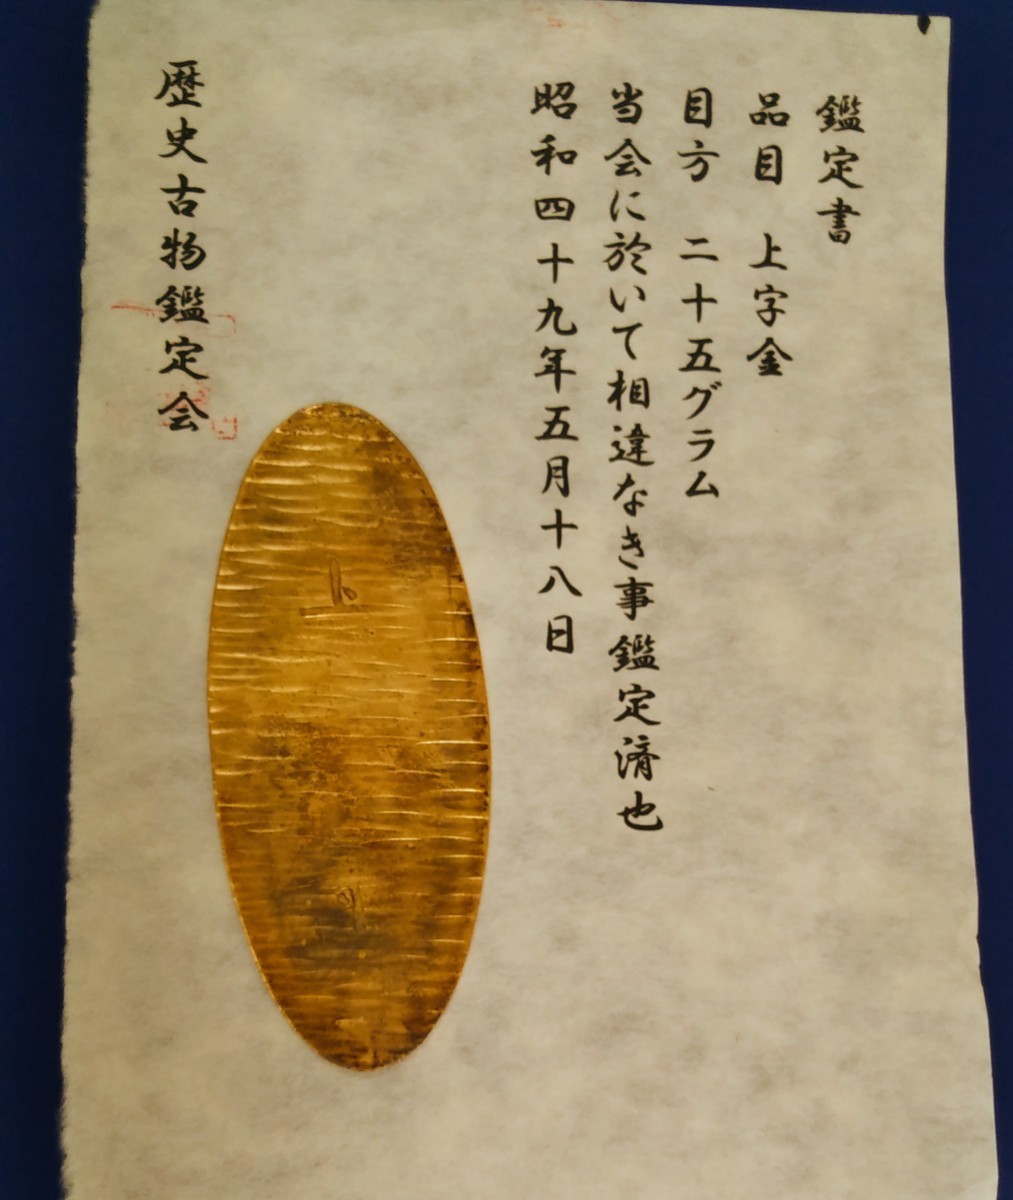 鑑定書
品目 上字金
目方 二十五グラム
当会に於いて相違なき事鑑定済也
昭和四十九年五月十八日
歴史古物鑑定会